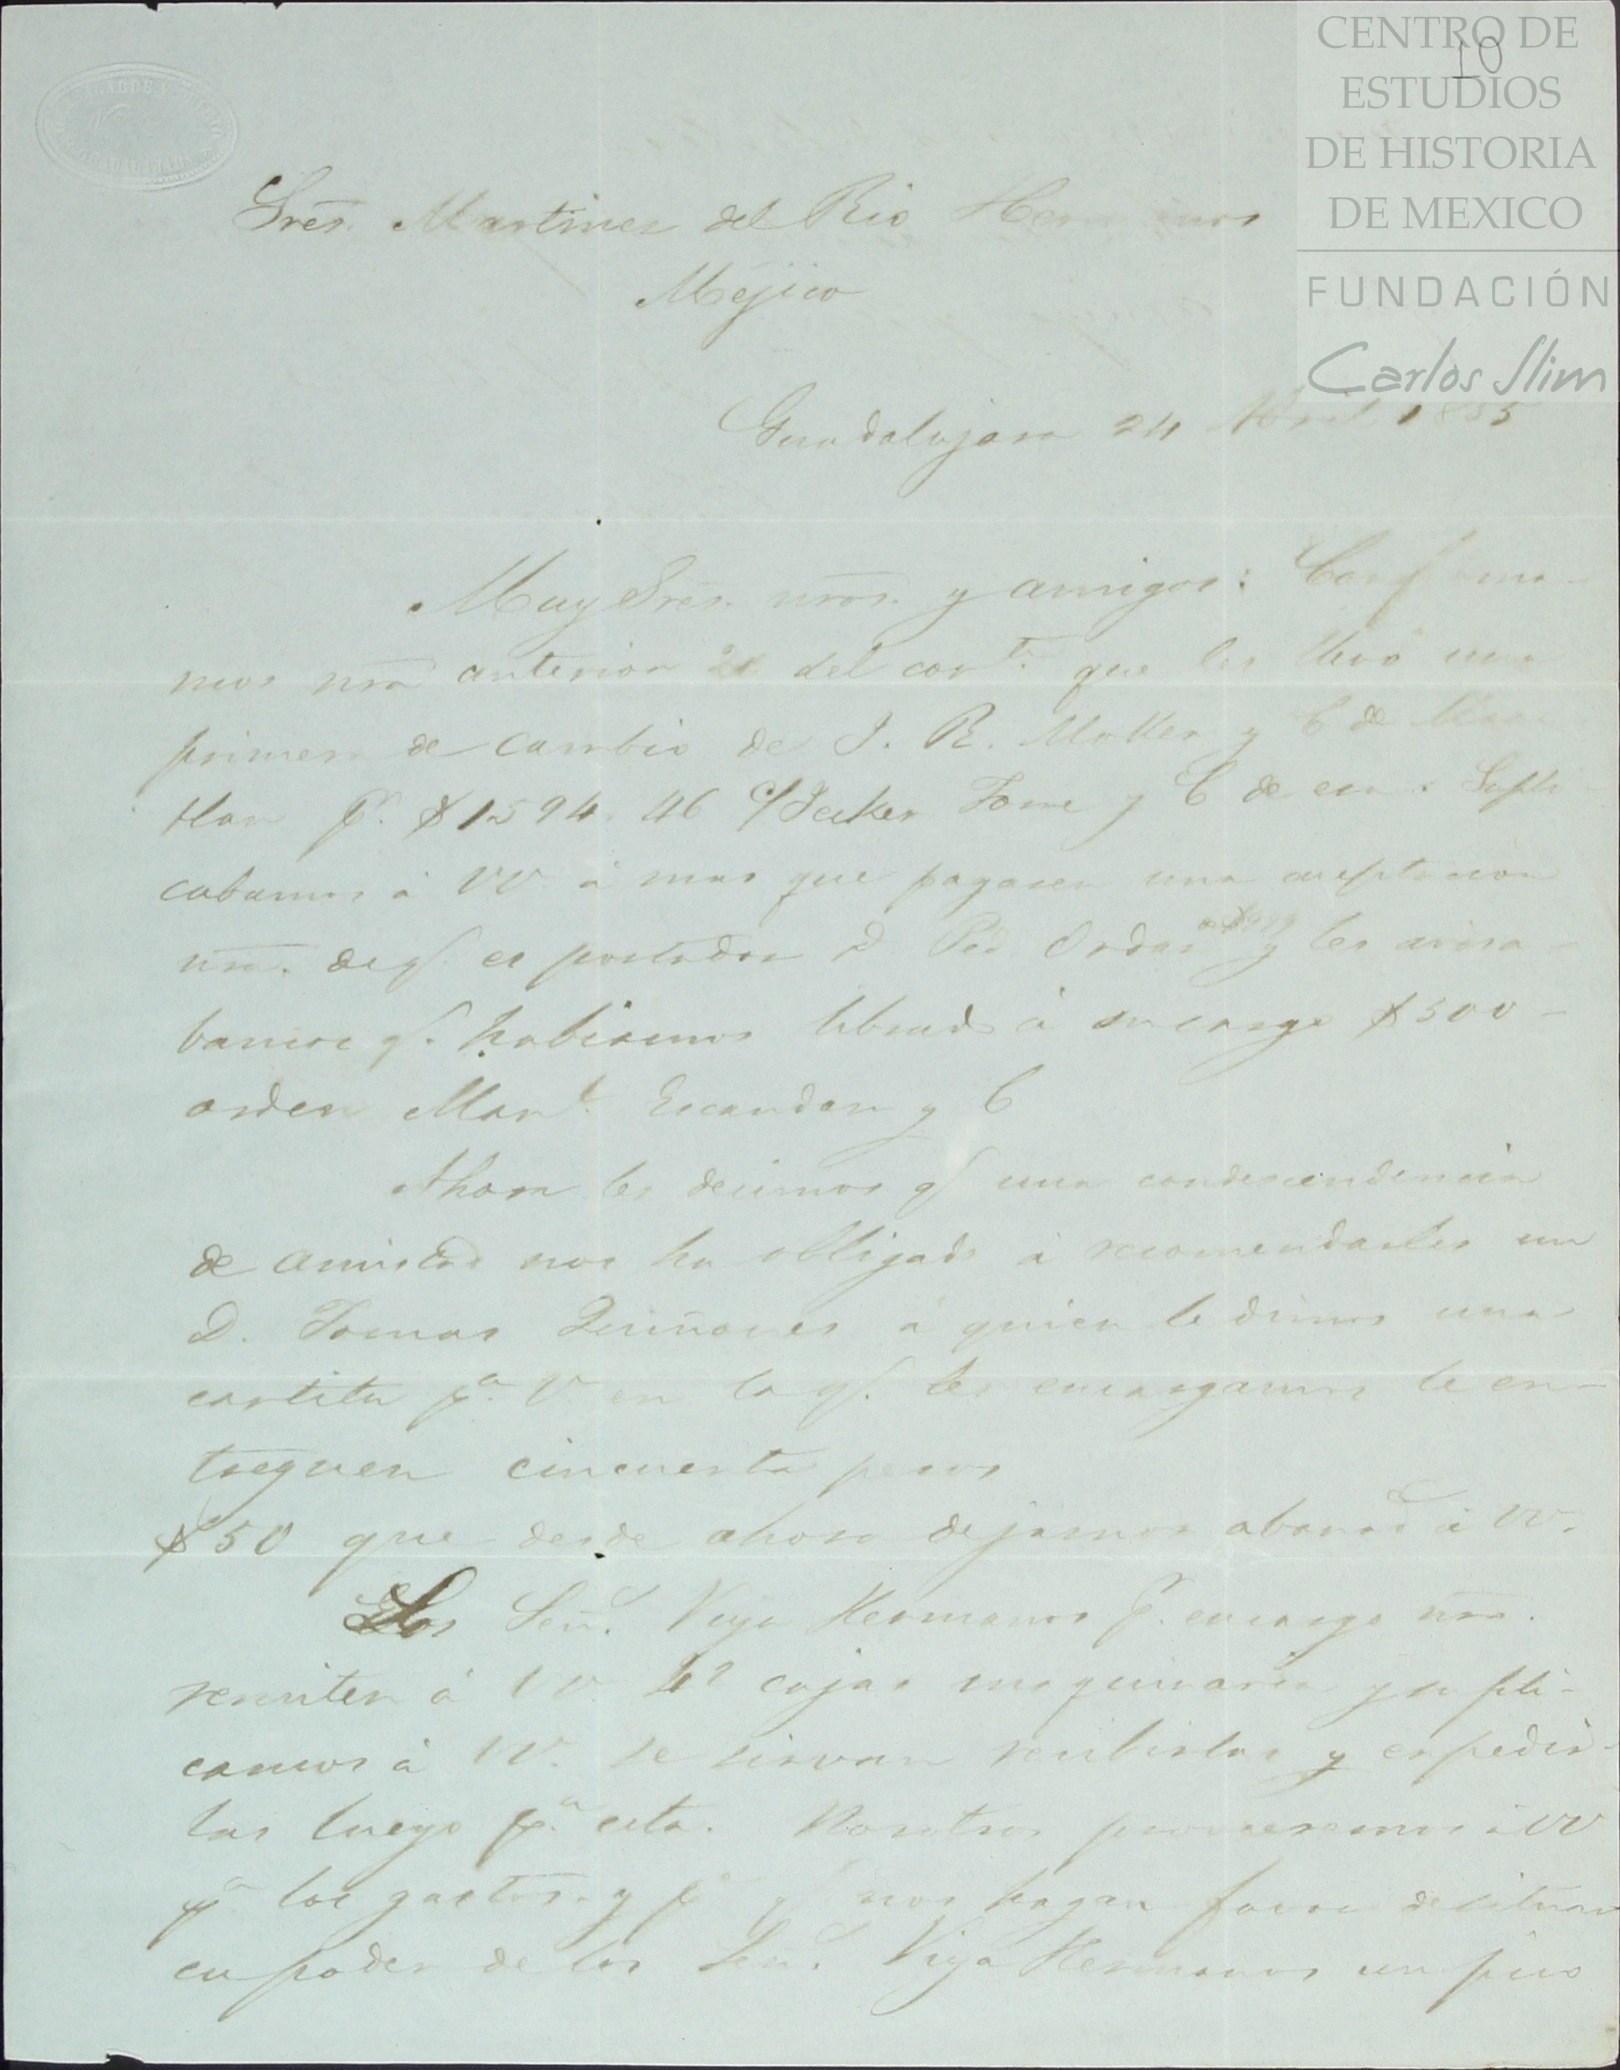 CENTRO DE
ESTUDIOS
DE HISTORIA
DE MEXICO
FUNDACIÓN
Carlos Slim
10
GUADALAJARA
Sres. Martinez del Rio Hermanos
Méjico
Guadalajara 24 Abril 1855
Muy Sres. nros. y amigos: Confirma-
mos nra anterior del corte. que les llevó una
primera de cambio de J. R. y C de Maza-
tlan pr. $1594. 46 c/ Jecker Torre y C de esa. Supli-
cabamos á VV á mas que pagasen una aceptacion
nra. de q. es portador D. Ped. Ordas y les avisa-
bamos q. habiamos librado á su cargo $500-
orden Manl. Escandon y C
Ahora les decimos q una condescendencia
de amistad nos ha obligado á recomendarles un
D. Tomas Quiñones á quien le dimos una
cartita pa. V en la q. les encargamos le en-
treguen cincuenta pesos
$50 que desde ahora dejamos abonado á VV.
Los Señ. Hermanos pr. encargo nro.
remiten á VV cajas maquinaria y supli-
camos á VV. se sirvan recibirlas y expedir-
las luego pa. esta. Nosotros proveeremos á VV
pa los gastos y pa q nos hagan favor de situar
en poder de los Señ. Hermanos un pico